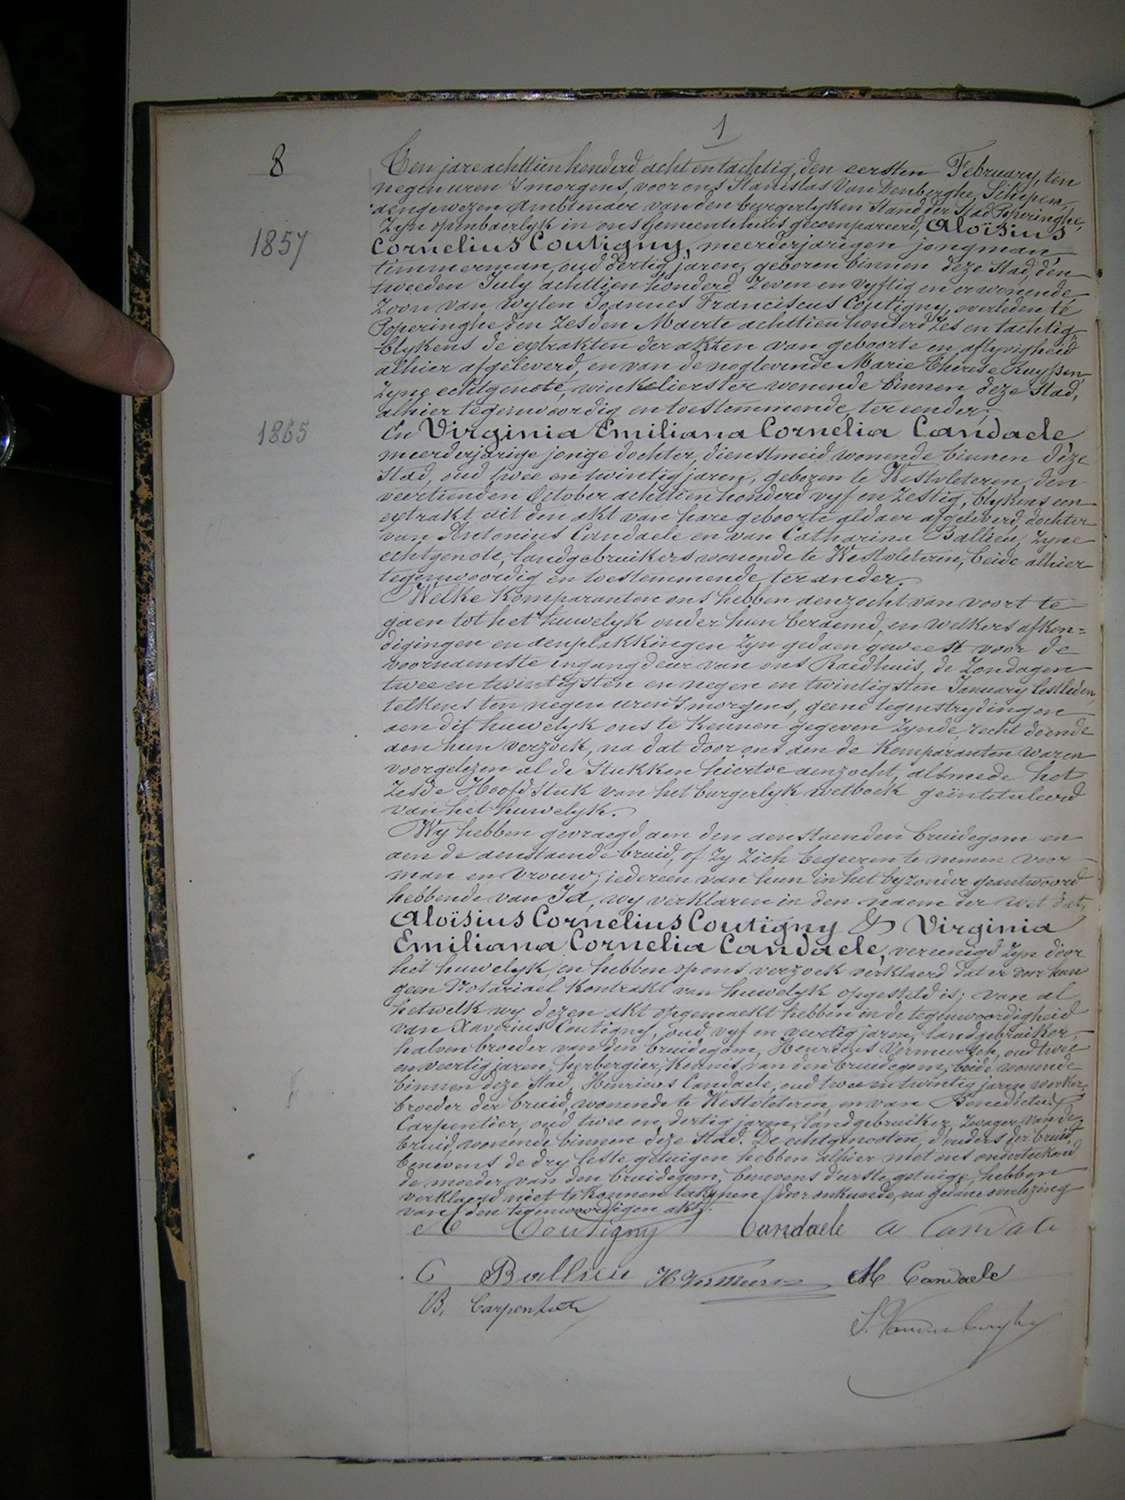 1
8
Ten jare achttien honderd acht en tachtig, den eersten February, ten
negen uren 's morgens, voor ons Stanislas Van Denberghe, Schepen,
aengewezen Ambtenaer van den burgerlyken Stand der Stad Poperinghe,
zyn openbaerlyk in ons gemeentehuis gecompareerd, Aloïsius
1857
Cornelius Coutigny, meerderjarigen jongman
timmerman, oud dertig jaren, geboren binnen deze Stad, den
tweeden July achttien honderd zeven en vyftig en er wonende
zoon van wylen Joannes Franciscus Coutigny, overleden te
Poperinghe den zesden Maerte achttien honderd zes en tachtig,
blykens de extrakten der akten van geboorte en aflyvigheid
alhier afgeleverd, en van de noglevende Marie Therese Kuypen,
zyne echtgenote, winkelierster wonende binnen deze Stad,
alhier tegenwoordig en toestemmende ter eender;
1865
En Virginia Emiliana Cornelia Candaele
meerderjarige jonge dochter, dienstmeid wonende binnen deze
Stad, oud twee en twintig jaren, geboren te Westvleteren, den
veertienden October achttien honderd vyf en zestig, blykens een
extrakt uit den akt van hare geboorte aldaer afgeleverd, dochter
van Antonius Candaele en van Catharina Ballieu, zyne
echtgenote, landgebruikers wonende te Westvleteren, beide alhier
tegenwoordig en toestemmende ter ander.
Welke Komparanten ons hebben aenzocht van voort te
gaen tot het huwelyk onder hun beraemd, en welkers afkon=
digingen en aenplakkingen zyn gedaen geweest voor de
voornaemste ingangdeur van ons Raedhuis, de Zondagen
twee en twintigsten en negen en twintigsten January lestleden,
telkens ten negen uren 's morgens, geene tegenstrydingen
aen dit huwelyk ons te kennen gegeven zynde, recht doende
aen hun verzoek, na dat door ons aen de Komparanten waren
voorgelezen al de Stukken hiertoe aenzocht, alsmede het
zesde Hoofdstuk van het burgerlyk wetboek geïntituleerd
van het huwelyk.
Wy hebben gevraegd aen den aenstaenden bruidegom en
aen de aenstaende bruid, of zy zich begeeren te nemen voor
man en vrouw; iedereen van hun in het byzonder geantwoord
hebbende van Ja, wy verklaren in den naem der wet dat,
Aloïsius Cornelius Coutigny & Virginia
Emiliana Cornelia Candaele, vereenigd zyn door
het huwelyk, en hebben op ons verzoek verklaerd dat er voor hun
geen Notariael Kontrakt van huwelyk opgesteld is; van al
hetwelk wy dezen akt opgemaekt hebben in de tegenwoordigheid
van Xaverius Coutigny, oud vyf en veertig jaren, landgebruiker,
halven broeder van den bruidegom, Henricus Vermeersch, oud twee
en veertig jaren, herbergier, Kennis van den bruidegom, beide wonende
binnen deze Stad, Henricus Candaele, oud twee en twintig jaren werker,
broeder der bruid, wonende te Westvleteren, en van Benedictus
Carpentier, oud twee en dertig jaren, landgebruiker, zwager van de
bruid, wonende binnen deze Stad. De echtgenooten, d'ouders der bruid,
benevens de dry leste getuigen hebben alhier met ons onderteekend
de moeder van den bruidegom, benevens d'eerste getuige, hebben
verklaerd niet te kunnen teekenen door onkunde, na gedane voorlezing
van den tegenwoordigen akt.
Coutigny Candaele a Candaele
C Ballieu H Vermeersch M Candaele
B. Carpentier
S. Vandenberghe